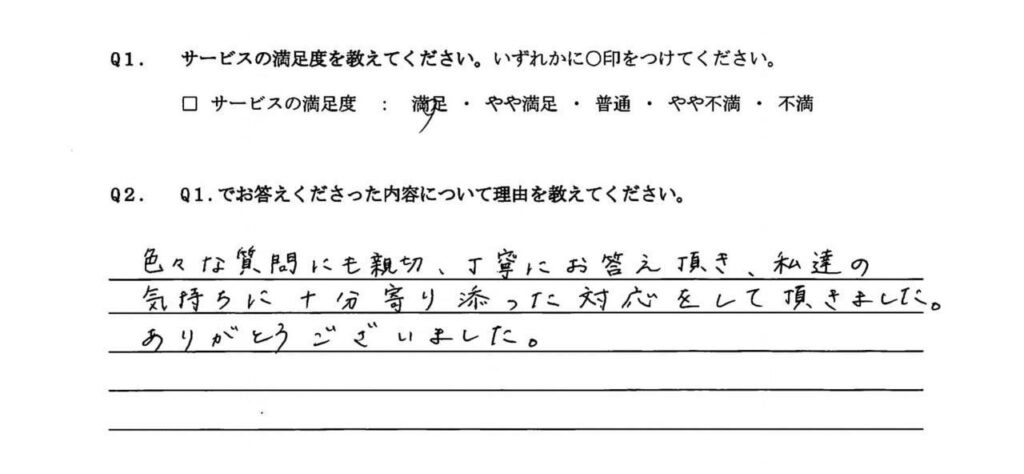 Q1. サービスの満足度を教えてください。いずれかに○印をつけてください。
□ サービスの満足度 : 満足 ・ やや満足 ・ 普通 ・ やや不満 ・ 不満
Q2. Q1.でお答えくださった内容について理由を教えてください。
色々な質問にも親切、丁寧にお答え頂き、私達の
気持ちに十分寄り添った対応をして頂きました。
ありがとうございました。